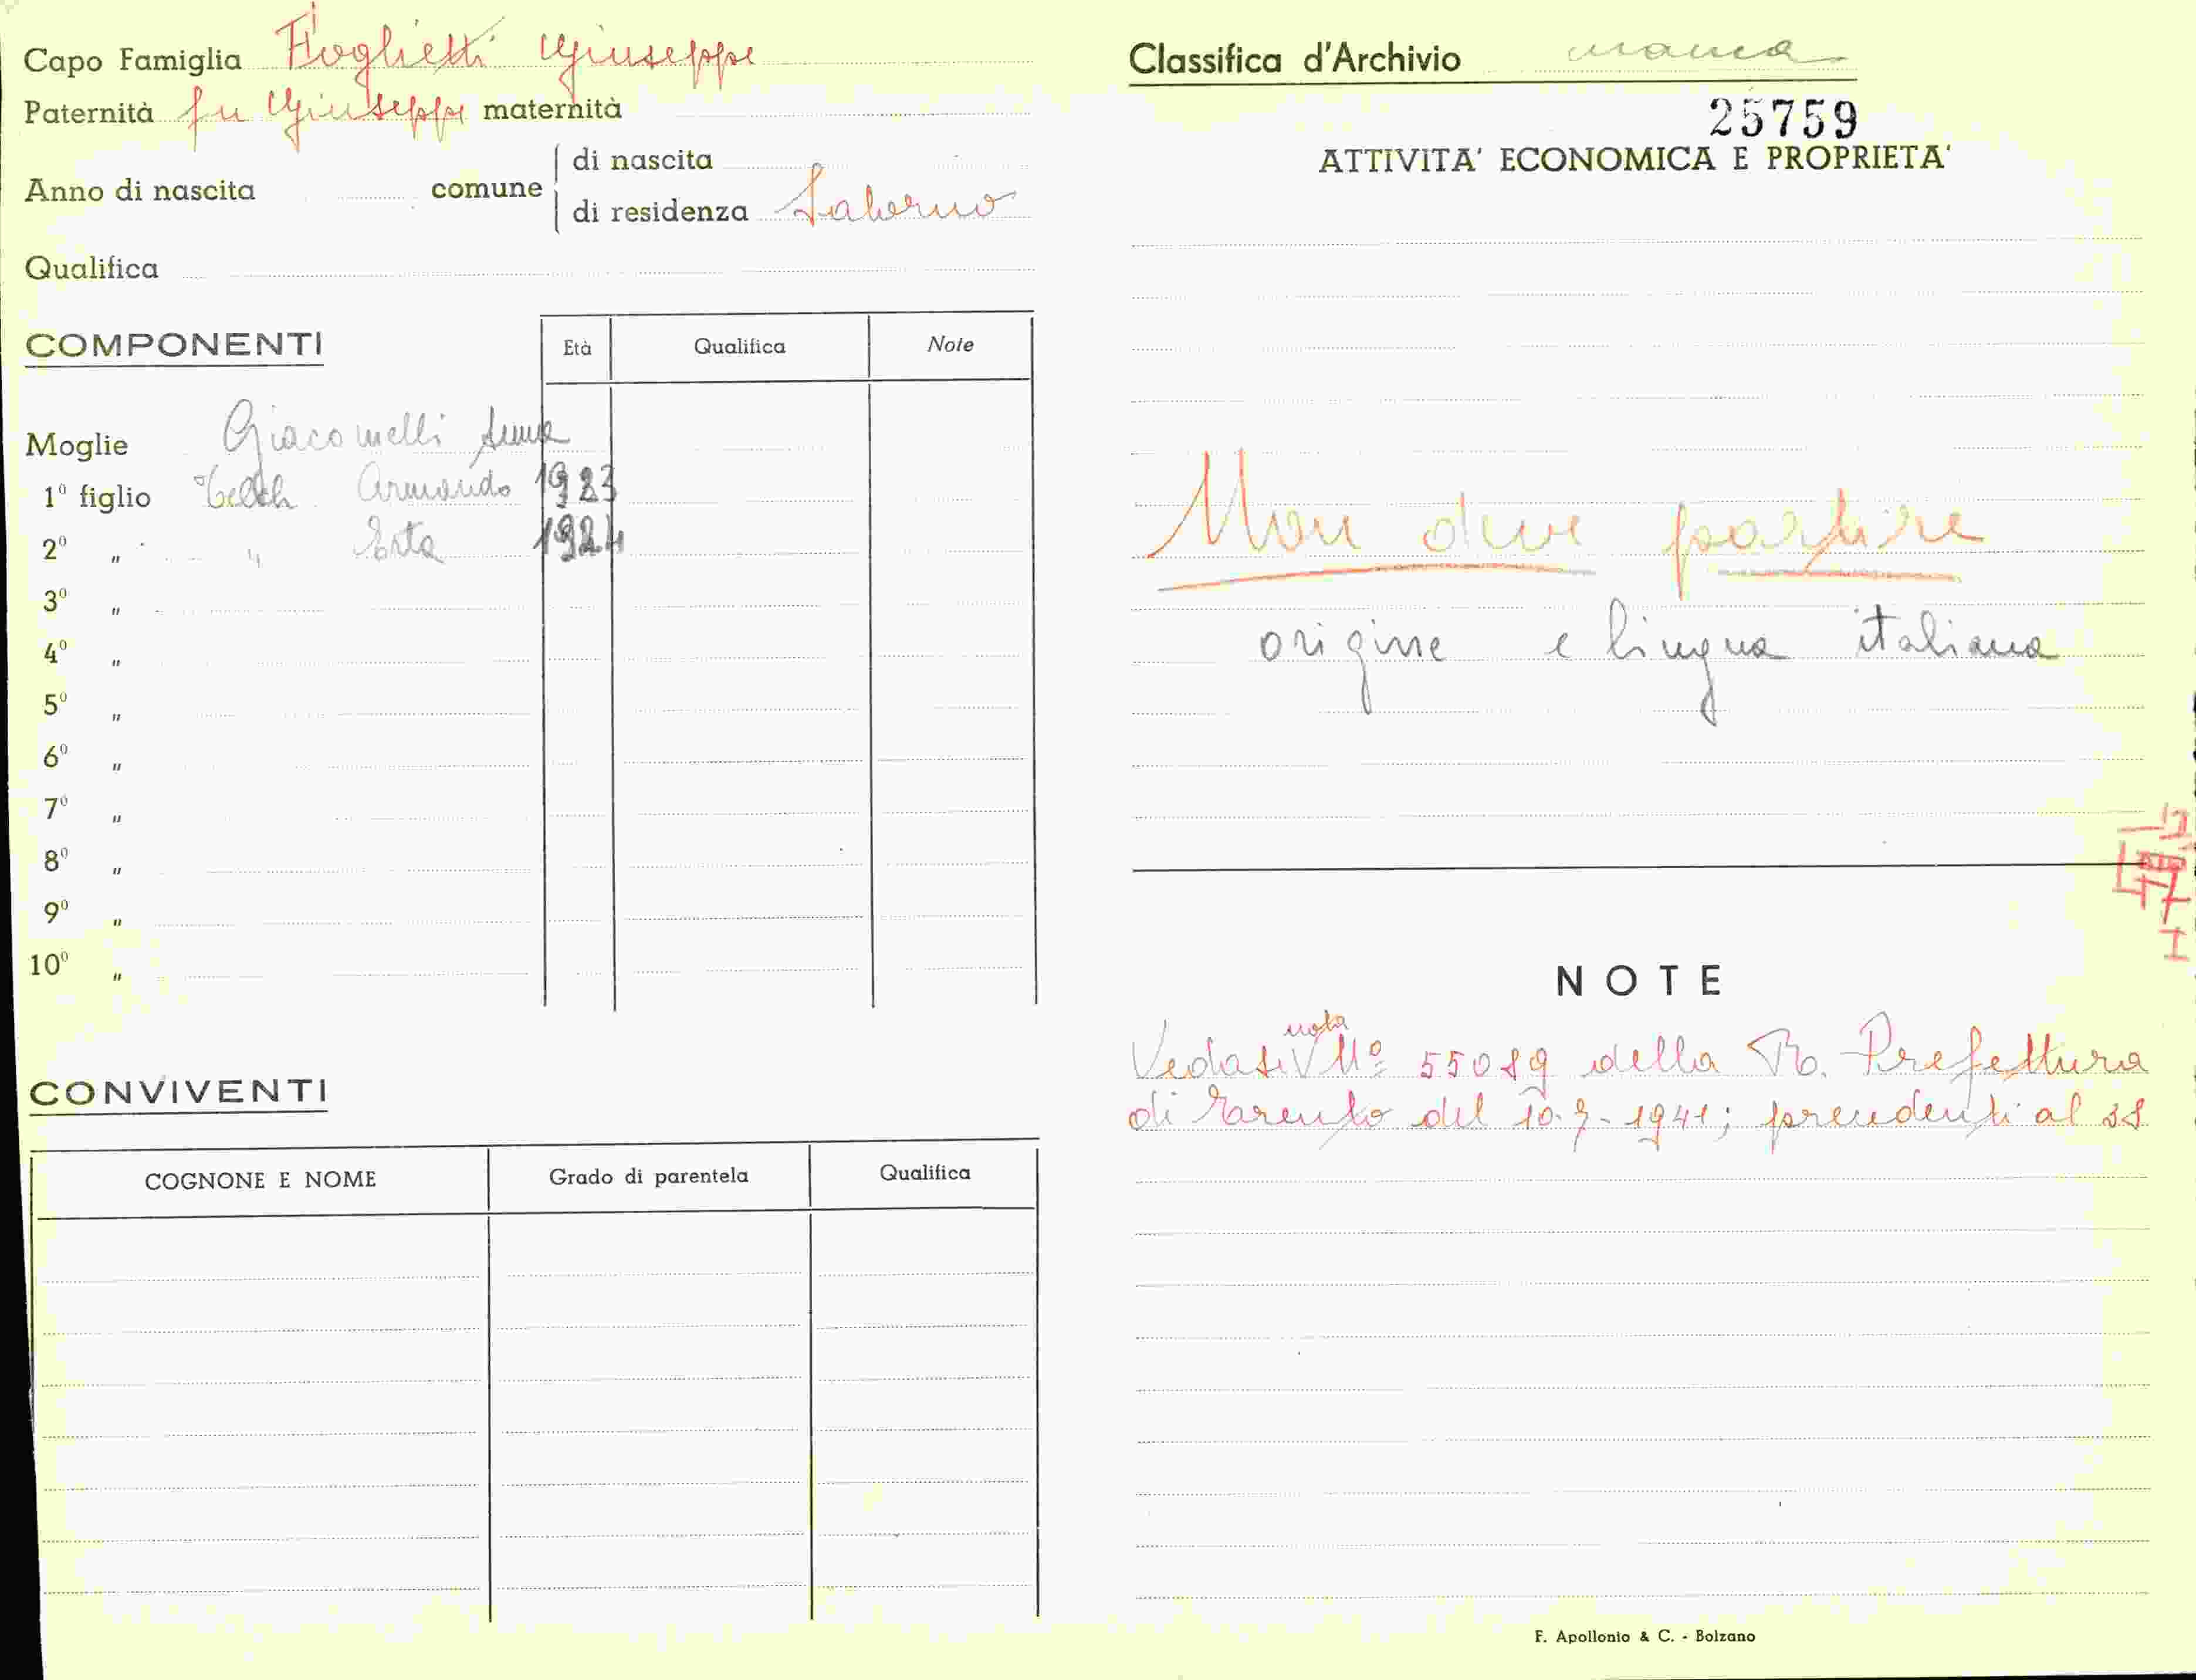 Capo Famiglia Foglietti Giuseppe
Paternità fu Giuseppe maternità
Anno di nascita comune di nascita
di residenza Salerno
Qualifica
COMPONENTI Età Qualifica Note
Moglie Giacomelli Anna
1º figlio Telch Armando 1923
2º " " Erta 1924
3º "
4º "
5º "
6º "
7º "
8º "
9º "
10º "
CONVIVENTI
COGNONE E NOME Grado di parentela Qualifica
Classifica d'Archivio manca
25759
ATTIVITA' ECONOMICA E PROPRIETA'
Non deve partire
origine e lingua italiana
NOTE
nota
Vedasi V Nº 55089 della R. Prefettura
di Trento del 10-7-1941; prendenti al 38
F. Apollonio & C. - Bolzano